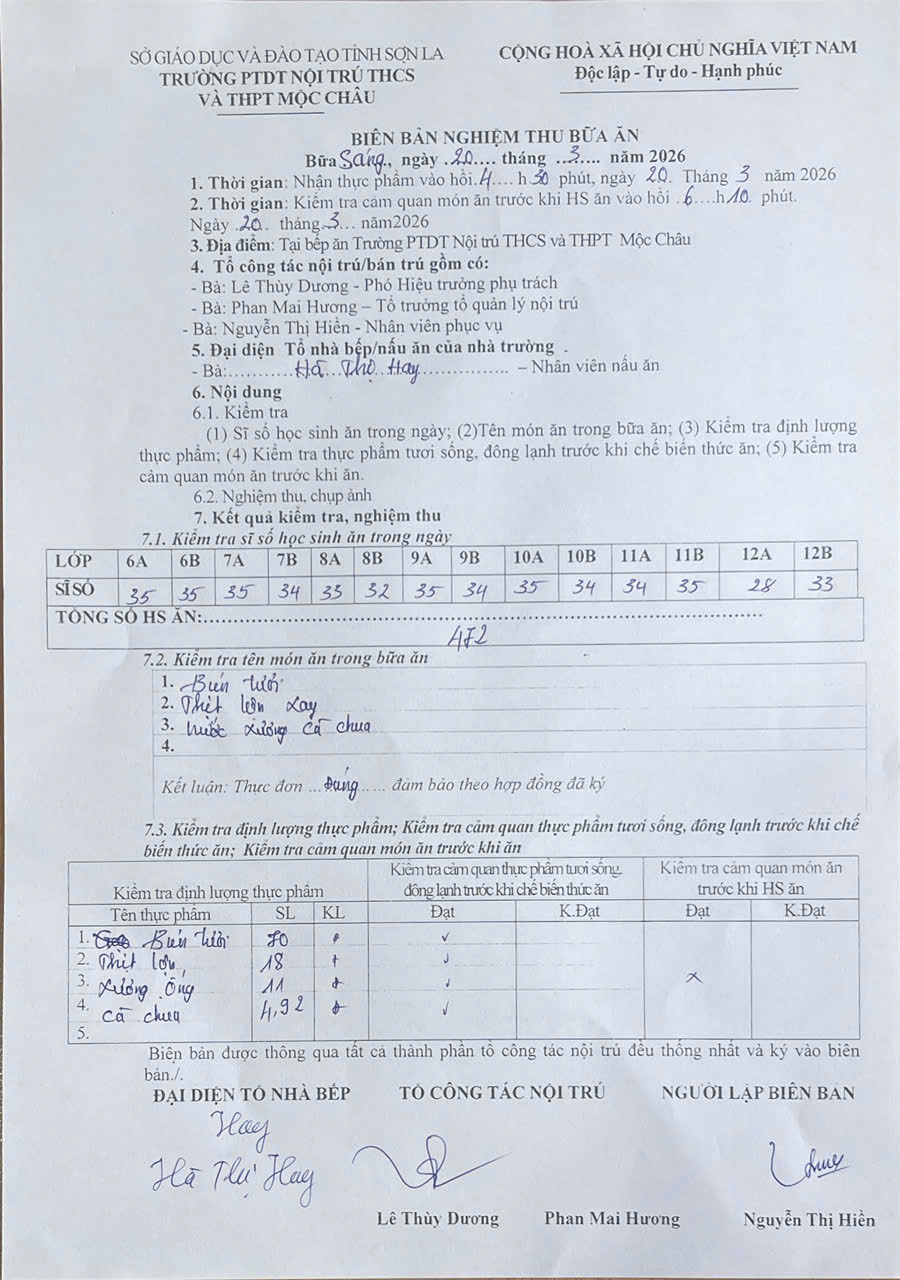 SỞ GIÁO DỤC VÀ ĐÀO TẠO TỈNH SƠN LA
TRƯỜNG PTDT NỘI TRÚ THCS
VÀ THPT MỘC CHÂU
CỘNG HOÀ XÃ HỘI CHỦ NGHĨA VIỆT NAM
Độc lập - Tự do - Hạnh phúc
BIÊN BẢN NGHIỆM THU BỮA ĂN
Bữa Sáng., ngày .20.... tháng ..3.... năm 2026
1. Thời gian: Nhận thực phẩm vào hồi.4.... h 30 phút, ngày 20. Tháng 3 năm 2026
2. Thời gian: Kiểm tra cảm quan món ăn trước khi HS ăn vào hồi .6....h10. phút.
Ngày .20.. tháng.3... năm2026
3. Địa điểm: Tại bếp ăn Trường PTDT Nội trú THCS và THPT Mộc Châu
4. Tổ công tác nội trú/bán trú gồm có:
- Bà: Lê Thùy Dương - Phó Hiệu trưởng phụ trách
- Bà: Phan Mai Hương – Tổ trưởng tổ quản lý nội trú
- Bà: Nguyễn Thị Hiền - Nhân viên phục vụ
5. Đại diện Tổ nhà bếp/nấu ăn của nhà trường .
- Bà:...........Hà...Thị..Hay............... – Nhân viên nấu ăn
6. Nội dung
6.1. Kiểm tra
(1) Sĩ số học sinh ăn trong ngày; (2)Tên món ăn trong bữa ăn; (3) Kiểm tra định lượng
thực phẩm; (4) Kiểm tra thực phẩm tươi sống, đông lạnh trước khi chế biến thức ăn; (5) Kiểm tra
cảm quan món ăn trước khi ăn.
6.2. Nghiệm thu, chụp ảnh
7. Kết quả kiểm tra, nghiệm thu
7.1. Kiểm tra sĩ số học sinh ăn trong ngày
LỚP 6A 6B 7A 7B 8A 8B 9A 9B 10A 10B 11A 11B 12A 12B
SĨ SỐ 35 35 35 34 33 32 35 34 35 34 34 35 28 33
TỔNG SỐ HS ĂN:..................................................
472
7.2. Kiểm tra tên món ăn trong bữa ăn
1. Bún tươi
2. Thịt lợn xay
3. Nước xương cà chua
4.
Kết luận: Thực đơn ...Đúng...... đảm bảo theo hợp đồng đã ký
7.3. Kiểm tra định lượng thực phẩm; Kiểm tra cảm quan thực phẩm tươi sống, đông lạnh trước khi chế
biến thức ăn; Kiểm tra cảm quan món ăn trước khi ăn
Kiểm tra định lượng thực phẩm
Kiểm tra cảm quan thực phẩm tươi sống,
đông lạnh trước khi chế biến thức ăn
Kiểm tra cảm quan món ăn
trước khi HS ăn
Tên thực phẩm SL KL Đạt K.Đạt Đạt K.Đạt
1. Bún tươi 70 ✓
2. Thịt lợn 18 ✓
3. Xương ống 11 ✓ x
4. Cà chua 4,92 ✓
5.
Biên bản được thông qua tất cả thành phần tổ công tác nội trú đều thống nhất và ký vào biên
bản./.
ĐẠI DIỆN TỔ NHÀ BẾP TỔ CÔNG TÁC NỘI TRÚ NGƯỜI LẬP BIÊN BẢN
Hay
Hà Thị Hay
Lê Thùy Dương Phan Mai Hương Nguyễn Thị Hiền